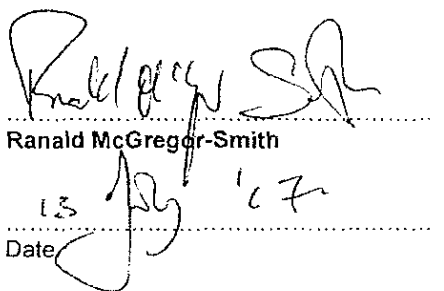 Ranald McGregor-Smith
13 July '17
Date